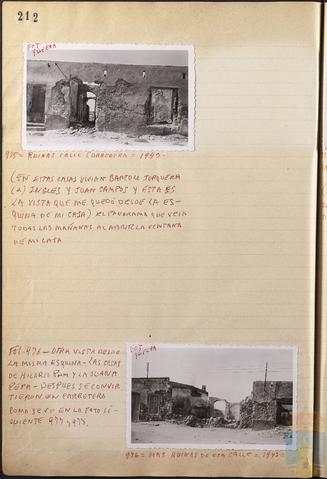 212
FOT
YUFERA
975 = RUINAS CALLE CORREDERA = 1943 =
(EN ESTAS CASAS VIVIAN BARTOLO
(A) INGLES Y JUAN CAMPOS Y ESTA ES
LA VISTA QUE ME QUEDÓ DESDE LA ES-
QUINA DE MI CASA) EL PANORAMA QUE VEIA
TODAS LAS MAÑANAS AL ABRIR LA VENTANA
DE MI CASA
FOT. 976 - OTRA VISTA DESDE
LA MISMA ESQUINA - LAS CASAS
DE HILARIO Y LA JUANA
PEPA - DESPUES SE CONVIR
TIERON EN CARRETERA
COMO SE VE EN LA FOTO SI-
GUIENTE 977 Y 978.
FOT
YUFERA
976 = MAS RUINAS DE ESA CALLE = 1943 =